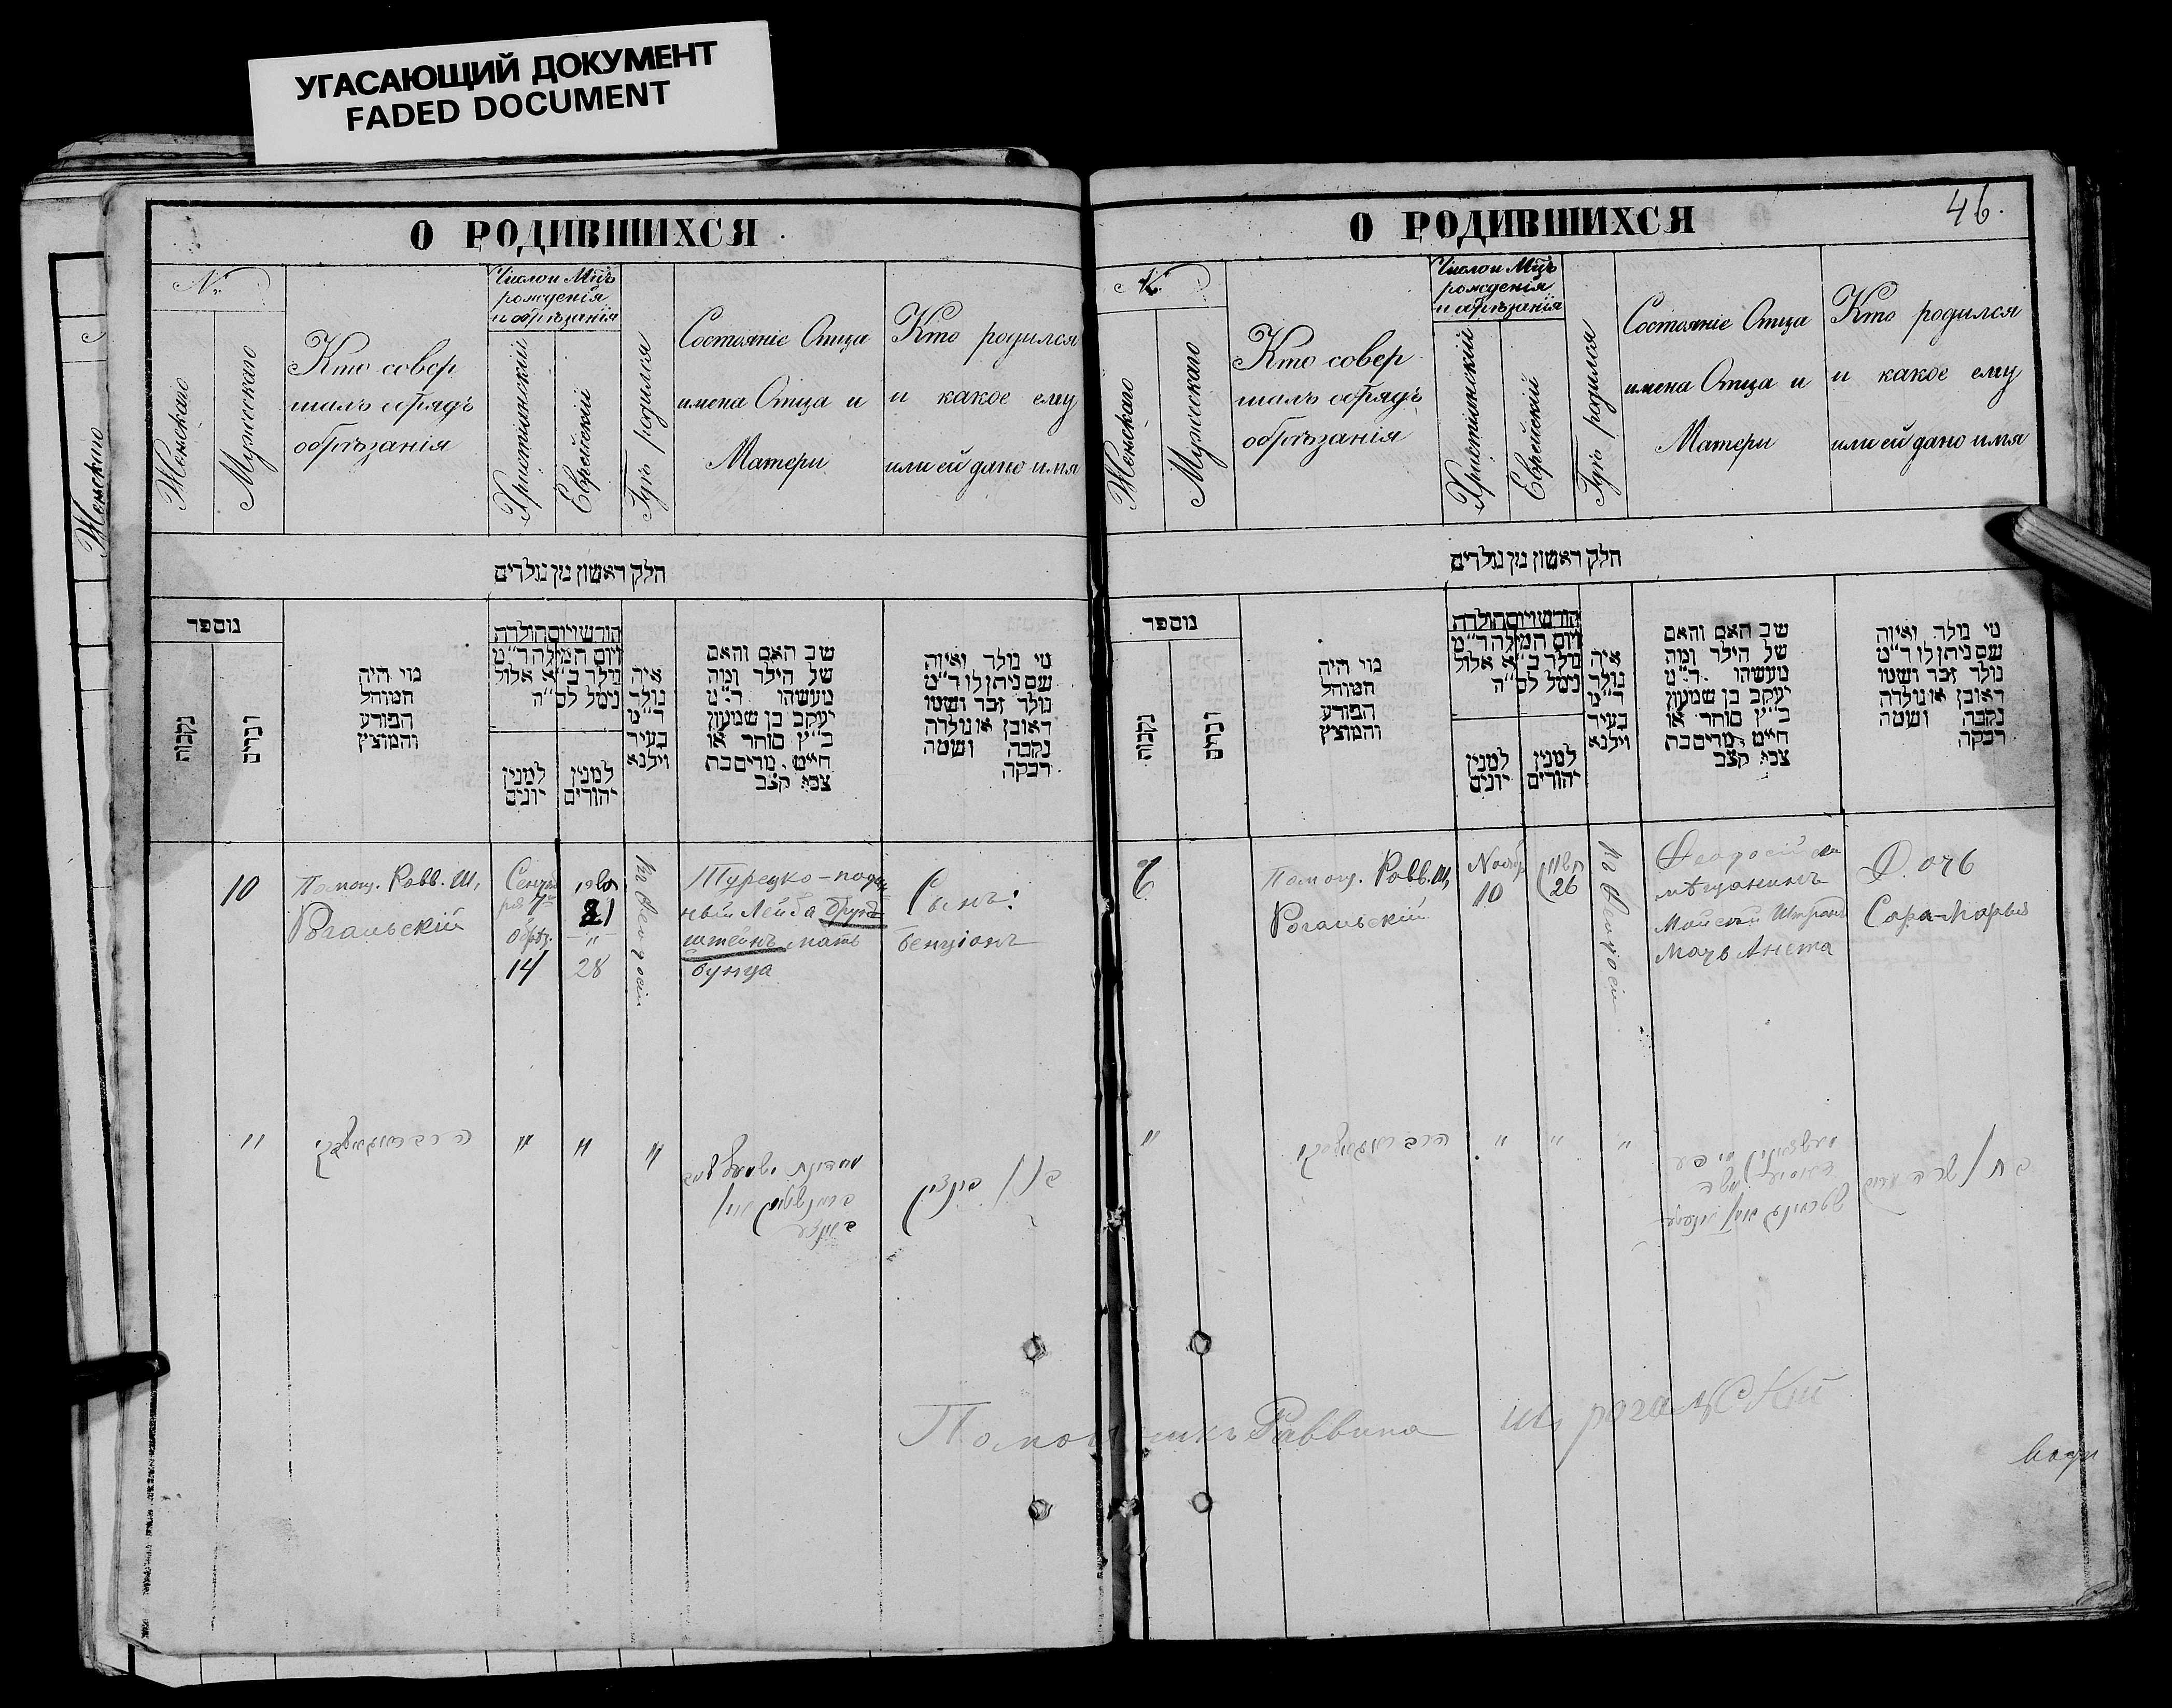 УГАСАЮЩИЙ ДОКУМЕНТ
FADED DOCUMENT
О РОДИВШИХСЯ
№
Женскаго
Мужескаго
Кто совер
шалъ обрядъ
обрѣзанія
Число и Мцъ
рожденія
и обрѣзанія
Христіанскій
Еврейскій
Гдѣ родился
Состояніе Отца
имена Отца и
Матери
Кто родился
и какое ему
или ей дано имя
חלק ראשון מן נולדים
מספר
נקבה
זכרים
מי היה
המוהל
הפורע
והמוצץ
חודש ויום הולדת
ויום המילה ד״מ
נולד ב״א אלול
נימל לס״ה
למנין
יונים
למנין
יהודים
איה
נולד
ד״מ
בעיר
וילנא
שם האב והאם
של הילד ומה
מעשהו ד״מ
יעקב בן שמעון
כ״ץ סוחר או
חייט, מרים בת
צבי קצב
מי נולד ואיזה
שם ניתן לו ד״מ
נולד זכר ושמו
ראובן או נולדה
נקבה ושמה
רבקה
10
Помощ. Равв. Ш,
Рогальскій
Сентяб
ря 7
обрѣз.
14
21
"
28
въ Ѳеодосіи
Турецко-поддан
ный Лейба Брун
штейнъ, мать
Бунца
Сынъ:
Бенціонъ
"
"
"
"
46.
О РОДИВШИХСЯ
№
Женскаго
Мужескаго
Кто совер
шалъ обрядъ
обрѣзанія
Число и Мцъ
рожденія
и обрѣзанія
Христіанскій
Еврейскій
Гдѣ родился
Состояніе Отца
имена Отца и
Матери
Кто родился
и какое ему
или ей дано имя
חלק ראשון מן נולדים
מספר
נקבה
זכרים
מי היה
המוהל
הפורע
והמוצץ
חודש ויום הולדת
ויום המילה ד״מ
נולד ב״א אלול
נימל לס״ה
למנין
יונים
למנין
יהודים
איה
נולד
ד״מ
בעיר
וילנא
שם האב והאם
של הילד ומה
מעשהו ד״מ
יעקב בן שמעון
כ״ץ סוחר או
חייט, מרים בת
צבי קצב
מי נולד ואיזה
שם ניתן לו ד״מ
נולד זכר ושמו
ראובן או נולדה
נקבה ושמה
רבקה
6
Помощ. Равв. Ш,
Рогальскій
Нояб
10
26
въ Ѳеодосіи
Ѳеодосійскій
мѣщанинъ
Мойсей
Мать Анета
Дочь
Сара-Марья
"
"
"
"
Помощникъ Раввина Ш, Рогальскій